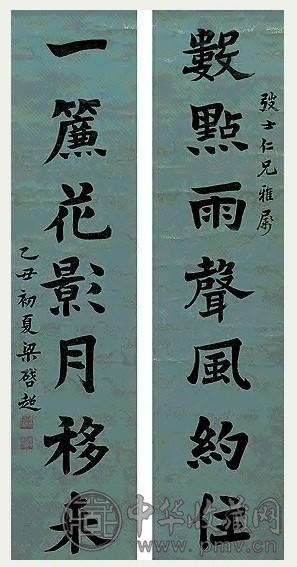 弢士仁兄雅屬
數點雨聲風約住
一簾花影月移來
乙丑初夏梁啓超
中华收藏网
www.pmv.cn